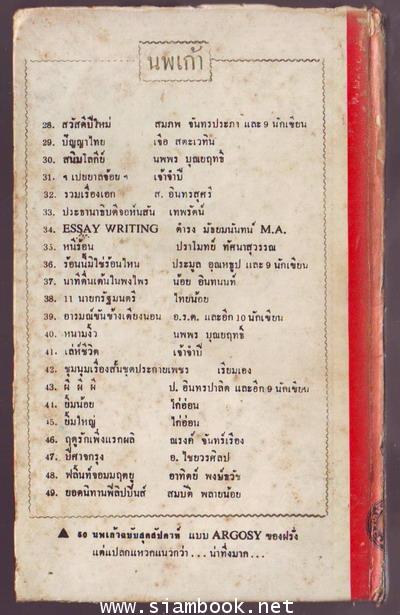 นพเก้า
28. สวัสดีปีใหม่ สมภพ จันทรประภา และ 9 นักเขียน
29. ปัญญาไทย เจือ สตะเวทิน
30. สนิมโลกีย์ นพพร บุณยฤทธิ์
31. ฯ เปยยาลน้อย ฯ เจ้าจำปี
32. รวมเรื่องเอก ส. อินทรสุศรี
33. ประธานาธิบดีจอห์นสัน เทพรัตน์
34. ESSAY WRITING ดำรง มัธยมนันทน์ M.A.
35. หนีร้อน ปราโมทย์ ทัศนาสุวรรณ
36. ร้อนนี้มิใช่ร้อนไหน ประมูล อุณหธูป และ 9 นักเขียน
37. นาทีตื่นเต้นในพงไพร น้อย อินทนนท์
38. 11 นายกรัฐมนตรี ไทยน้อย
39. อารมณ์ขันข้างเตียงนอน อ.ร.ด. และอีก 10 นักเขียน
40. หนามงิ้ว นพพร บุณยฤทธิ์
41. เล่ห์ชีวิต เจ้าจำปี
42. ชุมนุมเรื่องสั้นชุดประกายเพชร เรียมเอง
43. ผี ผี ผี ป. อินทรปาลิต และอีก 9 นักเขียน
44. ยิ้มน้อย ไก่อ่อน
45. ยิ้มใหญ่ ไก่อ่อน
46. ฤดูรักเพิ่งแรกผลิ ณรงค์ จันทร์เรือง
47. ปีศาจกรุง อ. ไชยวรศิลป
48. ฟลิ้นท์จอมมฤตยู อาทิตย์ พงษ์ธวัช
49. ยอดนิทานฟิลิปปินส์ สมบัติ พลายน้อย
▲ 50 นพเก้าฉบับสุดสัปดาห์ แบบ ARGOSY ของฝรั่ง
แต่แปลกแหวกแนวกว่า... น่าทึ่งมาก...
www.siambook.net